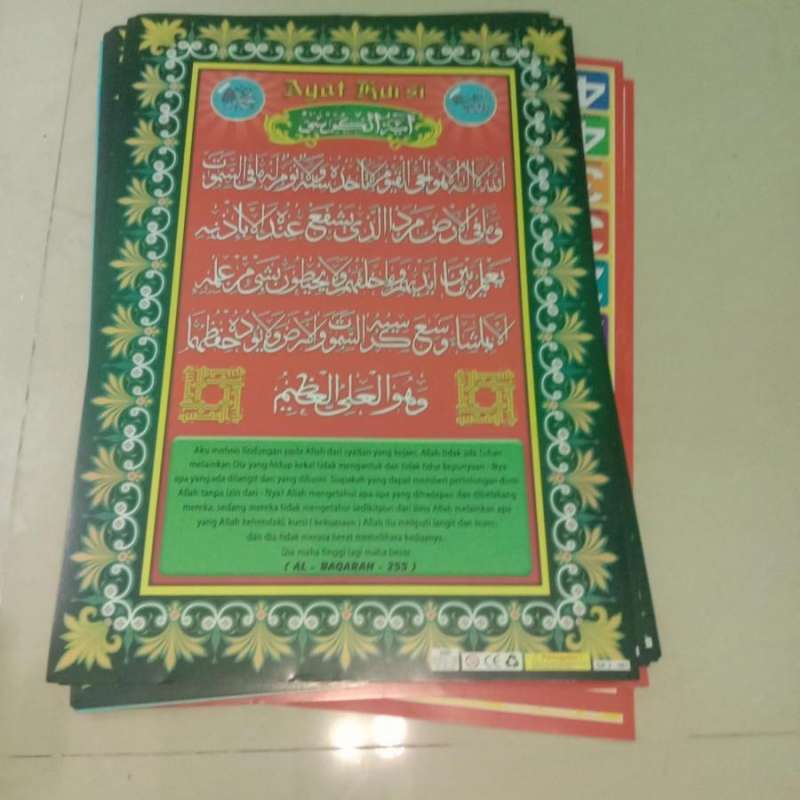 Ayat Kursi
آية الكرسي
الله لا إله إلا هو الحي القيوم لا تأخذه سنة ولا نوم له ما في السموت
وما في الأرض من ذا الذي يشفع عنده إلا بإذنه
يعلم ما بين أيديهم وما خلفهم ولا يحيطون بشيء من علمه
إلا بما شاء وسع كرسيه السموت والأرض ولا يؤده حفظهما
وهو العلي العظيم
Aku mohon lindungan pada Allah dari syaitan yang kejam. Allah tidak ada Tuhan
melainkan Dia yang hidup kekal tidak mengantuk dan tidak tidur kepunyaan - Nya
apa yang ada dilangit dan yang dibumi. Siapakah yang dapat memberi pertolongan disisi
Allah tanpa izin dari - Nya? Allah mengetahui apa-apa yang dihadapan dan dibelakang
mereka, sedang mereka tidak mengetahui sedikitpun dari ilmu Allah melainkan apa
yang Allah kehendaki, kursi ( kekuasaan ) Allah itu meliputi langit dan bumi,
dan dia tidak merasa berat memelihara keduanya.
Dia maha tinggi lagi maha besar
( AL - BAQARAH - 255 )
CE